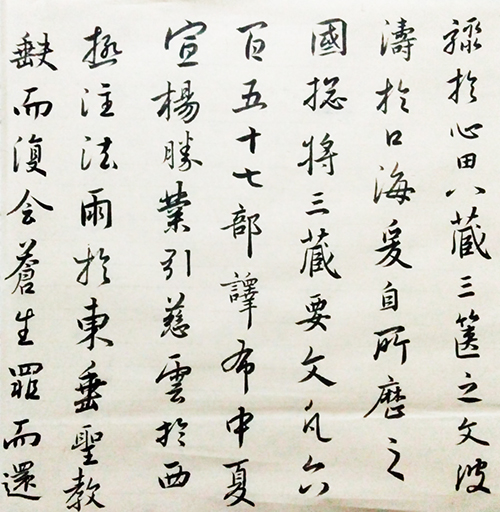 驟於心田八藏三篋之文波
濤於口海爰自所歷之
國揔將三藏要文凡六
百五十七部譯布中夏
宣楊勝業引慈雲於西
極注法雨於東垂聖教
缺而復全蒼生罪而還